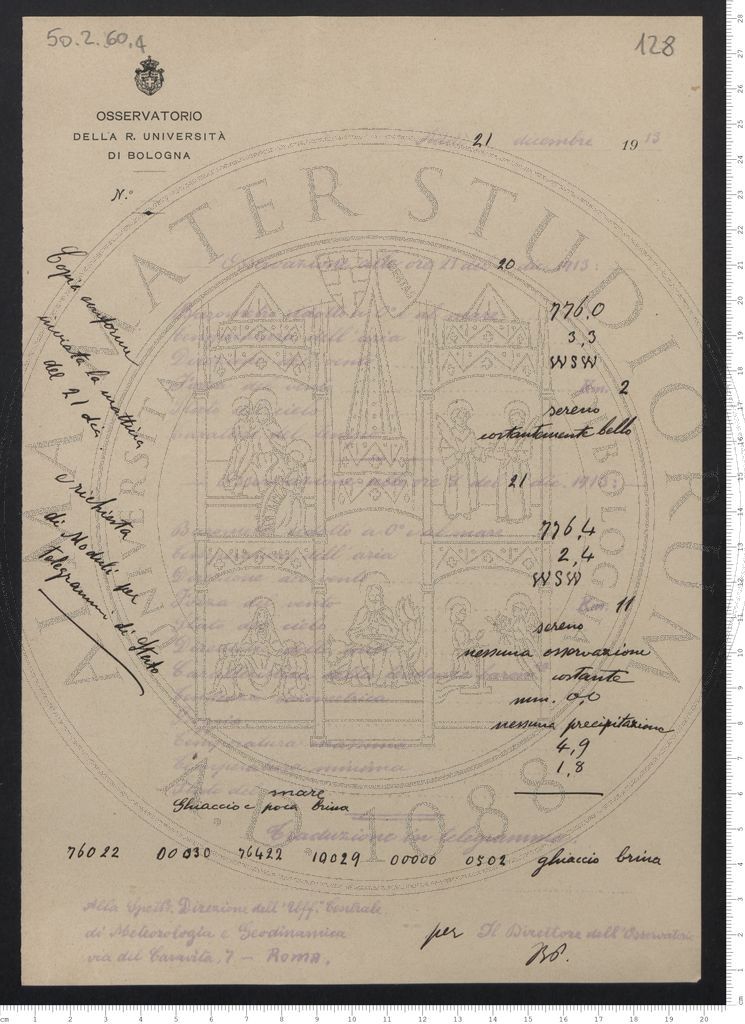 50.2.60.4
128
OSSERVATORIO
DELLA R. UNIVERSITÀ
DI BOLOGNA
N.°
21 dicembre 1913
Copia conforme
inviata la mattina
del 21 dic.
e richiesta
di Moduli per
telegrammi di Stato
ALMA MATER STUDIORUM
UNIVERSITÀ DI BOLOGNA
A.D. 1088
Osservazione alle ore 21 del 20 dic. 1913:
Barometro ridotto a 0° e al mare 776,0
Temperatura dell'aria 3,3
Direzione del vento WSW
Forza del vento Km. 2
Stato del cielo sereno
costantemente bello
Osservazione alle ore 8 del 21 dic. 1913:
Barometro ridotto a 0° e al mare 776,4
Temperatura dell'aria 2,4
Direzione del vento WSW
Forza del vento Km. 11
Stato del cielo sereno
Direzione delle nubi nessuna osservazione
Caratteristica della tendenza barom. costante
Tendenza barometrica mm. 0,0
Pioggia nessuna precipitazione
Temperatura massima 4,9
Temperatura minima 1,8
Stato del mare
Ghiaccio e poca brina
Traduzione in telegramma.
76022 00030 76422 10029 00000 0502 ghiaccio brina
Alla Spett. Direzione dell'Uff. Centrale
di Meteorologia e Geodinamica
via del Caravita, 7 – ROMA.
per Il Direttore dell'Osservatorio